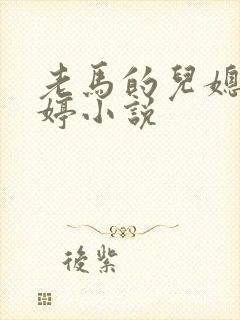 老馬的兒媳
婷小説
後紫